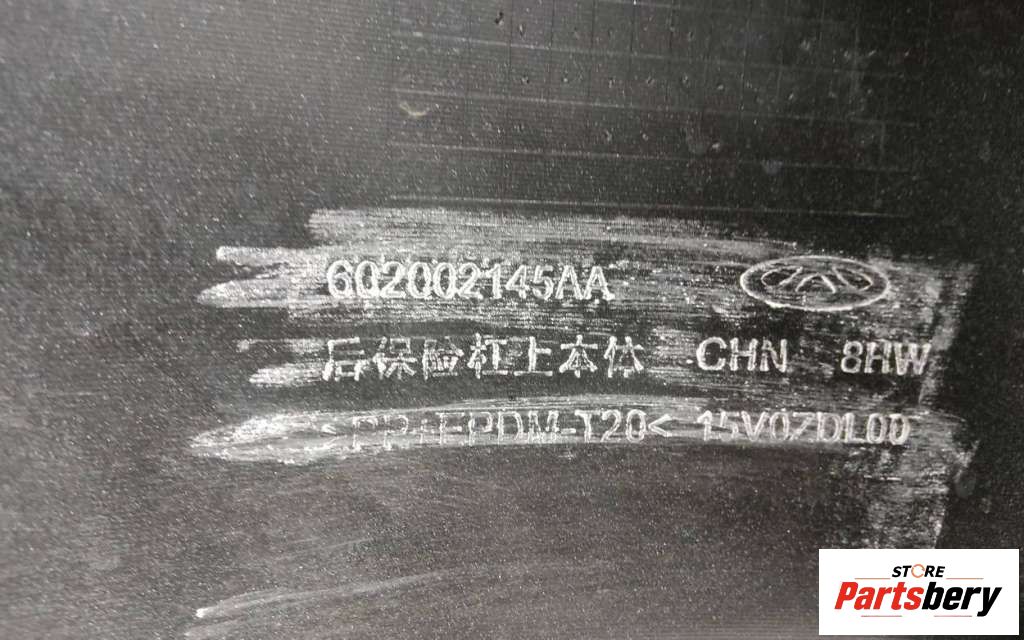 602002145AA
后保险杠上本体 CHN 8HW
>PP+EPDM-T20< 15V0ZDL00
STORE
Partsbery